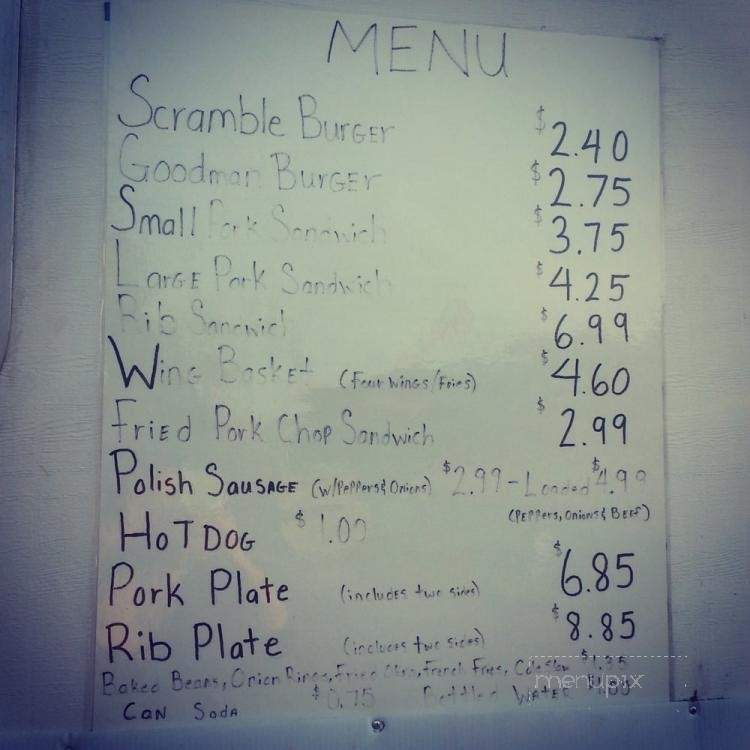 MENU
Scramble Burger $2.40
Goodman Burger $2.75
Small Pork Sandwich $3.75
Large Pork Sandwich $4.25
Rib Sandwich $6.99
Wing Basket (Four Wings/Fries) $4.60
Fried Pork Chop Sandwich $2.99
Polish Sausage (w/Peppers & Onions) $2.99 - Loaded $4.99
(Peppers, Onions & Beef)
Hot Dog $1.00
Pork Plate (includes two sides) $6.85
Rib Plate (includes two sides) $8.85
Baked Beans, Onion Rings, Fried Okra, French Fries, Coleslaw $1.35
Can Soda $0.75 Bottled Water
menupix